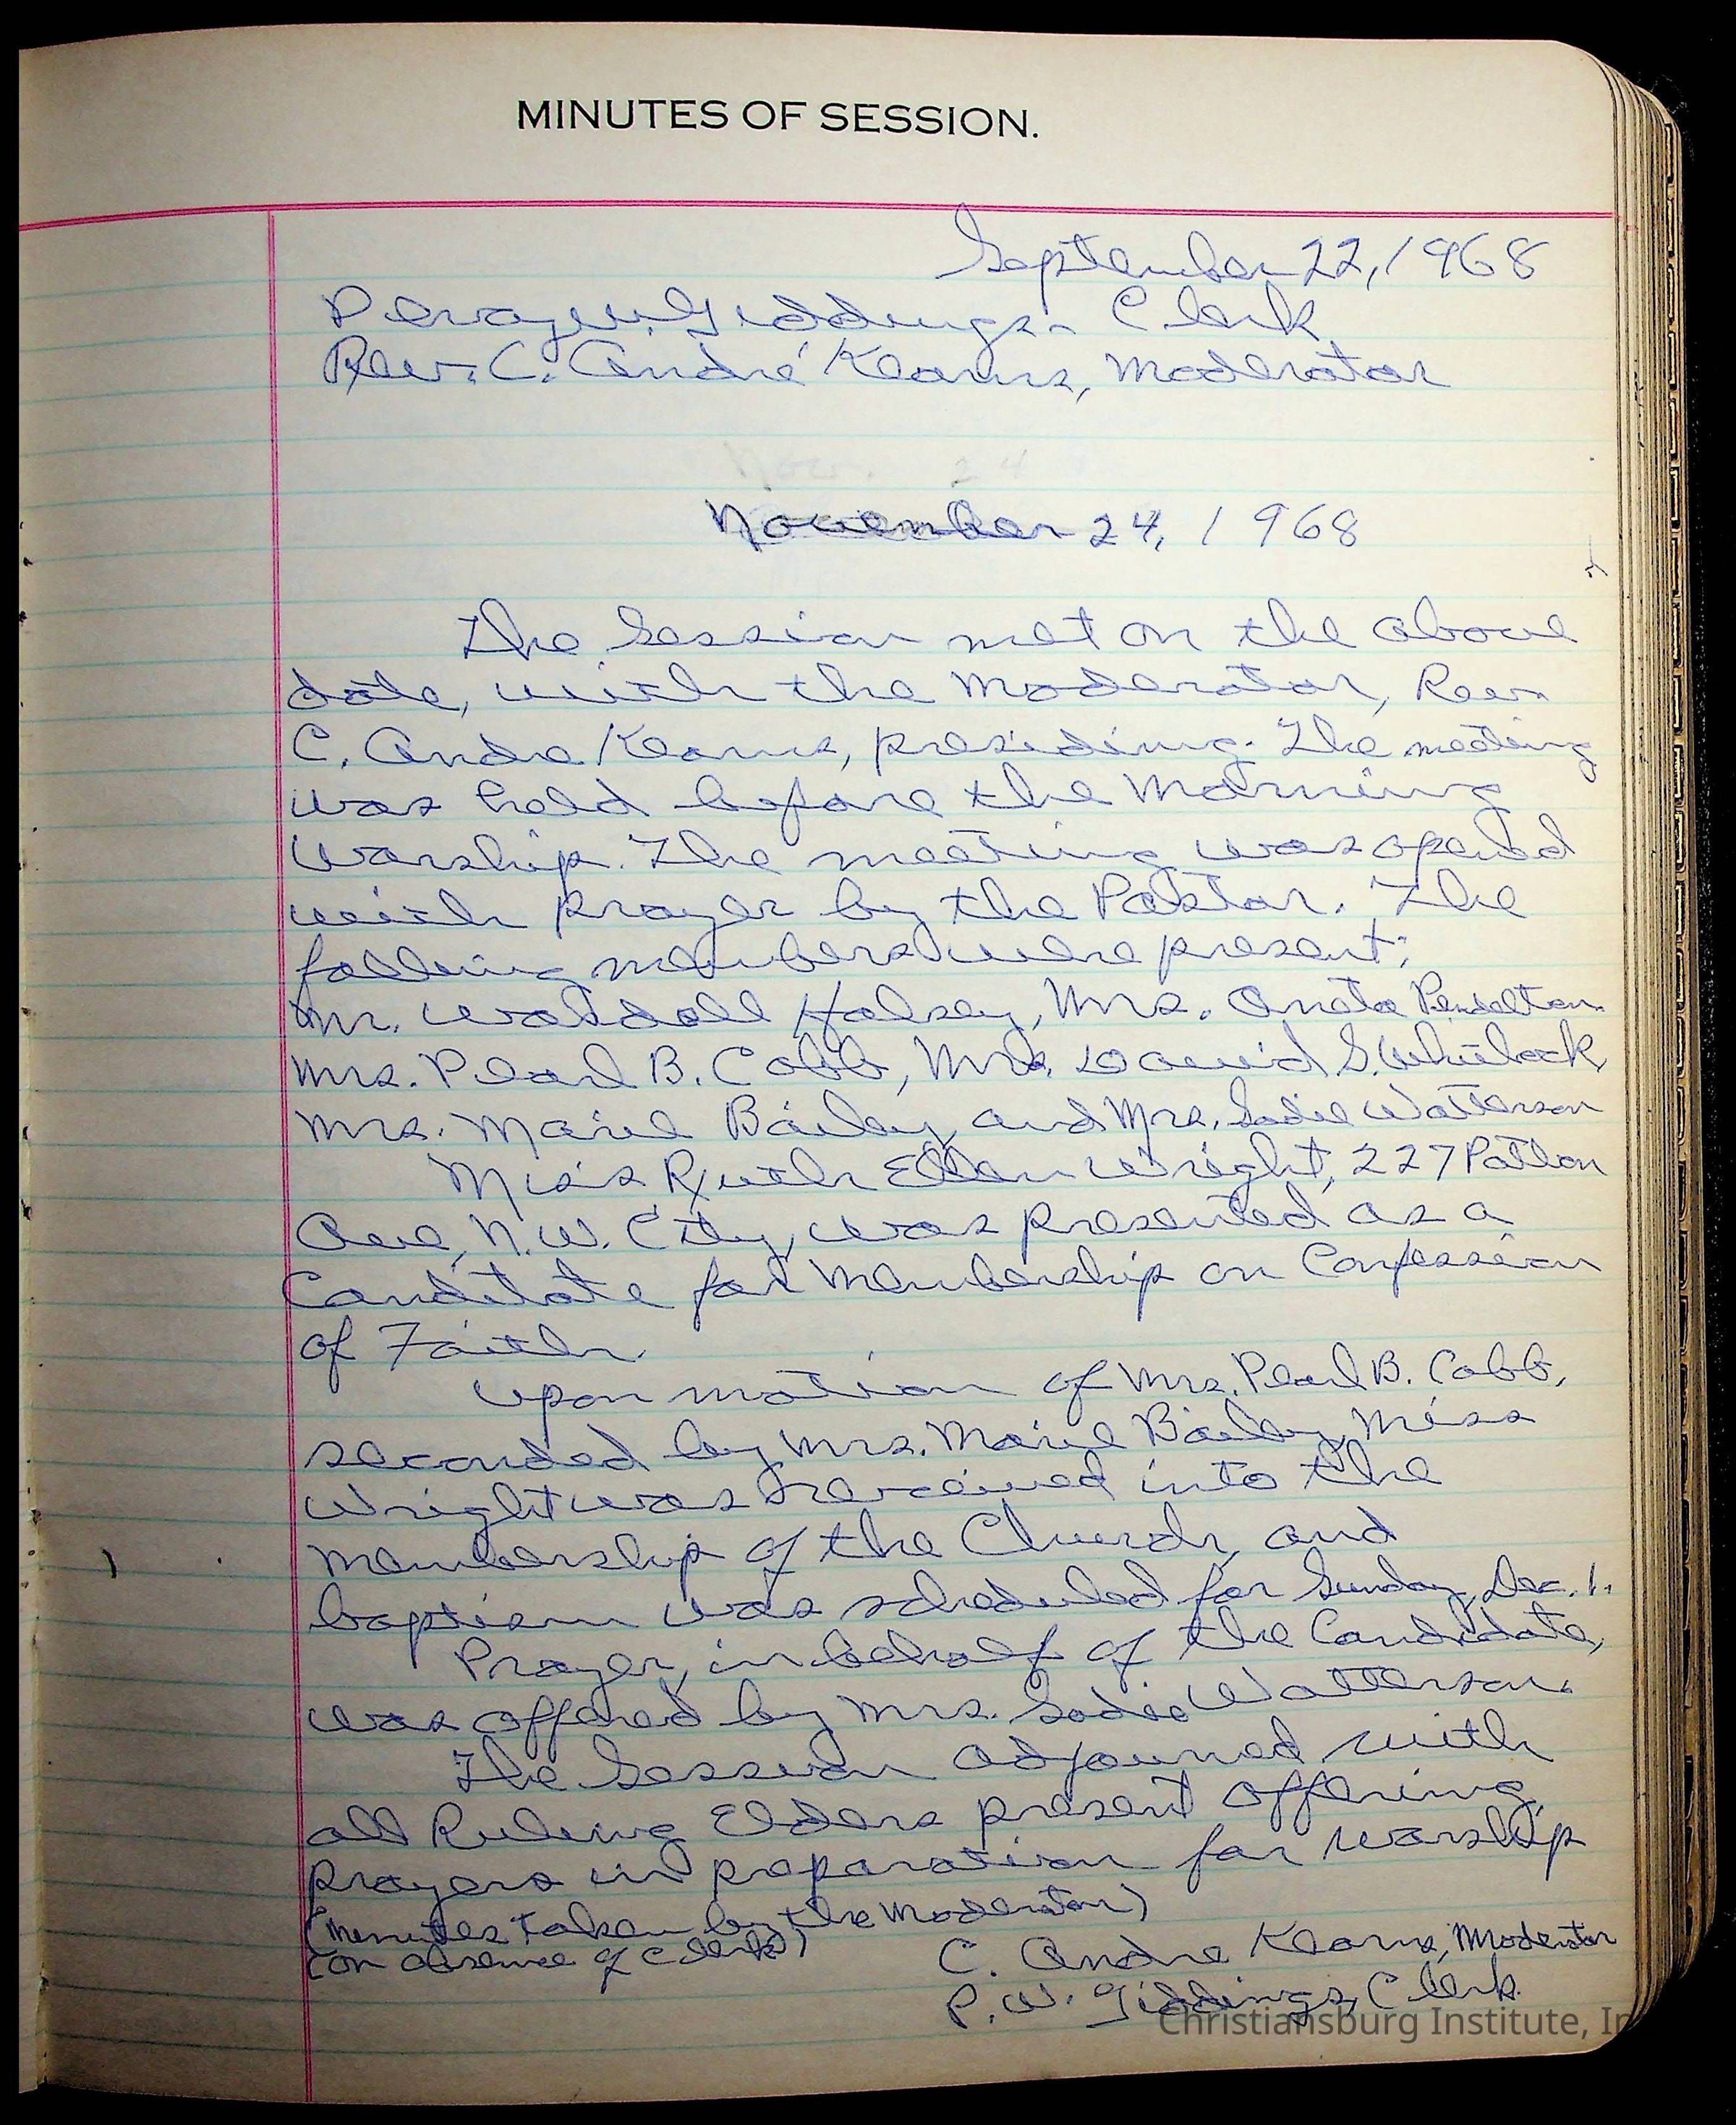 MINUTES OF SESSION.
September 22, 1968
Giddings - Clerk
Rev. C. André Kearns, Moderator
Nov. 24
November 24, 1968
The Session met on the above
date, with the Moderator, Rev.
C. Andre Kearns, presiding. The meeting
was held before the Morning
Worship. The meeting was opened
with prayer by the Pastor. The
following members were present:
Mr. Waddell Halsey, Mrs. Oneta Pendelton
Mrs. Pearl B. Cobb, Mrs. David S. Whitlock,
Mrs. Marie Bailey, and Mrs. Sadie Watterson
Miss Ruth Ellen Wright, 227 Patton
Ave, N.W. City, was presented as a
Canditate for Membership on Confession
of Faith.
Upon motion of Mrs. Pearl B. Cobb,
seconded by Mrs. Marie Bailey, Miss
Wright was received into the
membership of the Church, and
baptism was scheduled for Sunday, Dec. 1.
Prayer, in behalf of the Candidate,
was offered by Mrs. Sadie Watterson.
The Session adjourned with
all Ruling Elders present offering
prayers in preparation for worship
(Minutes taken by the Moderator)
(on absence of clerk)
C. Andre Kearns, Moderator
P. W. Giddings, Clerk.
Christiansburg Institute, In